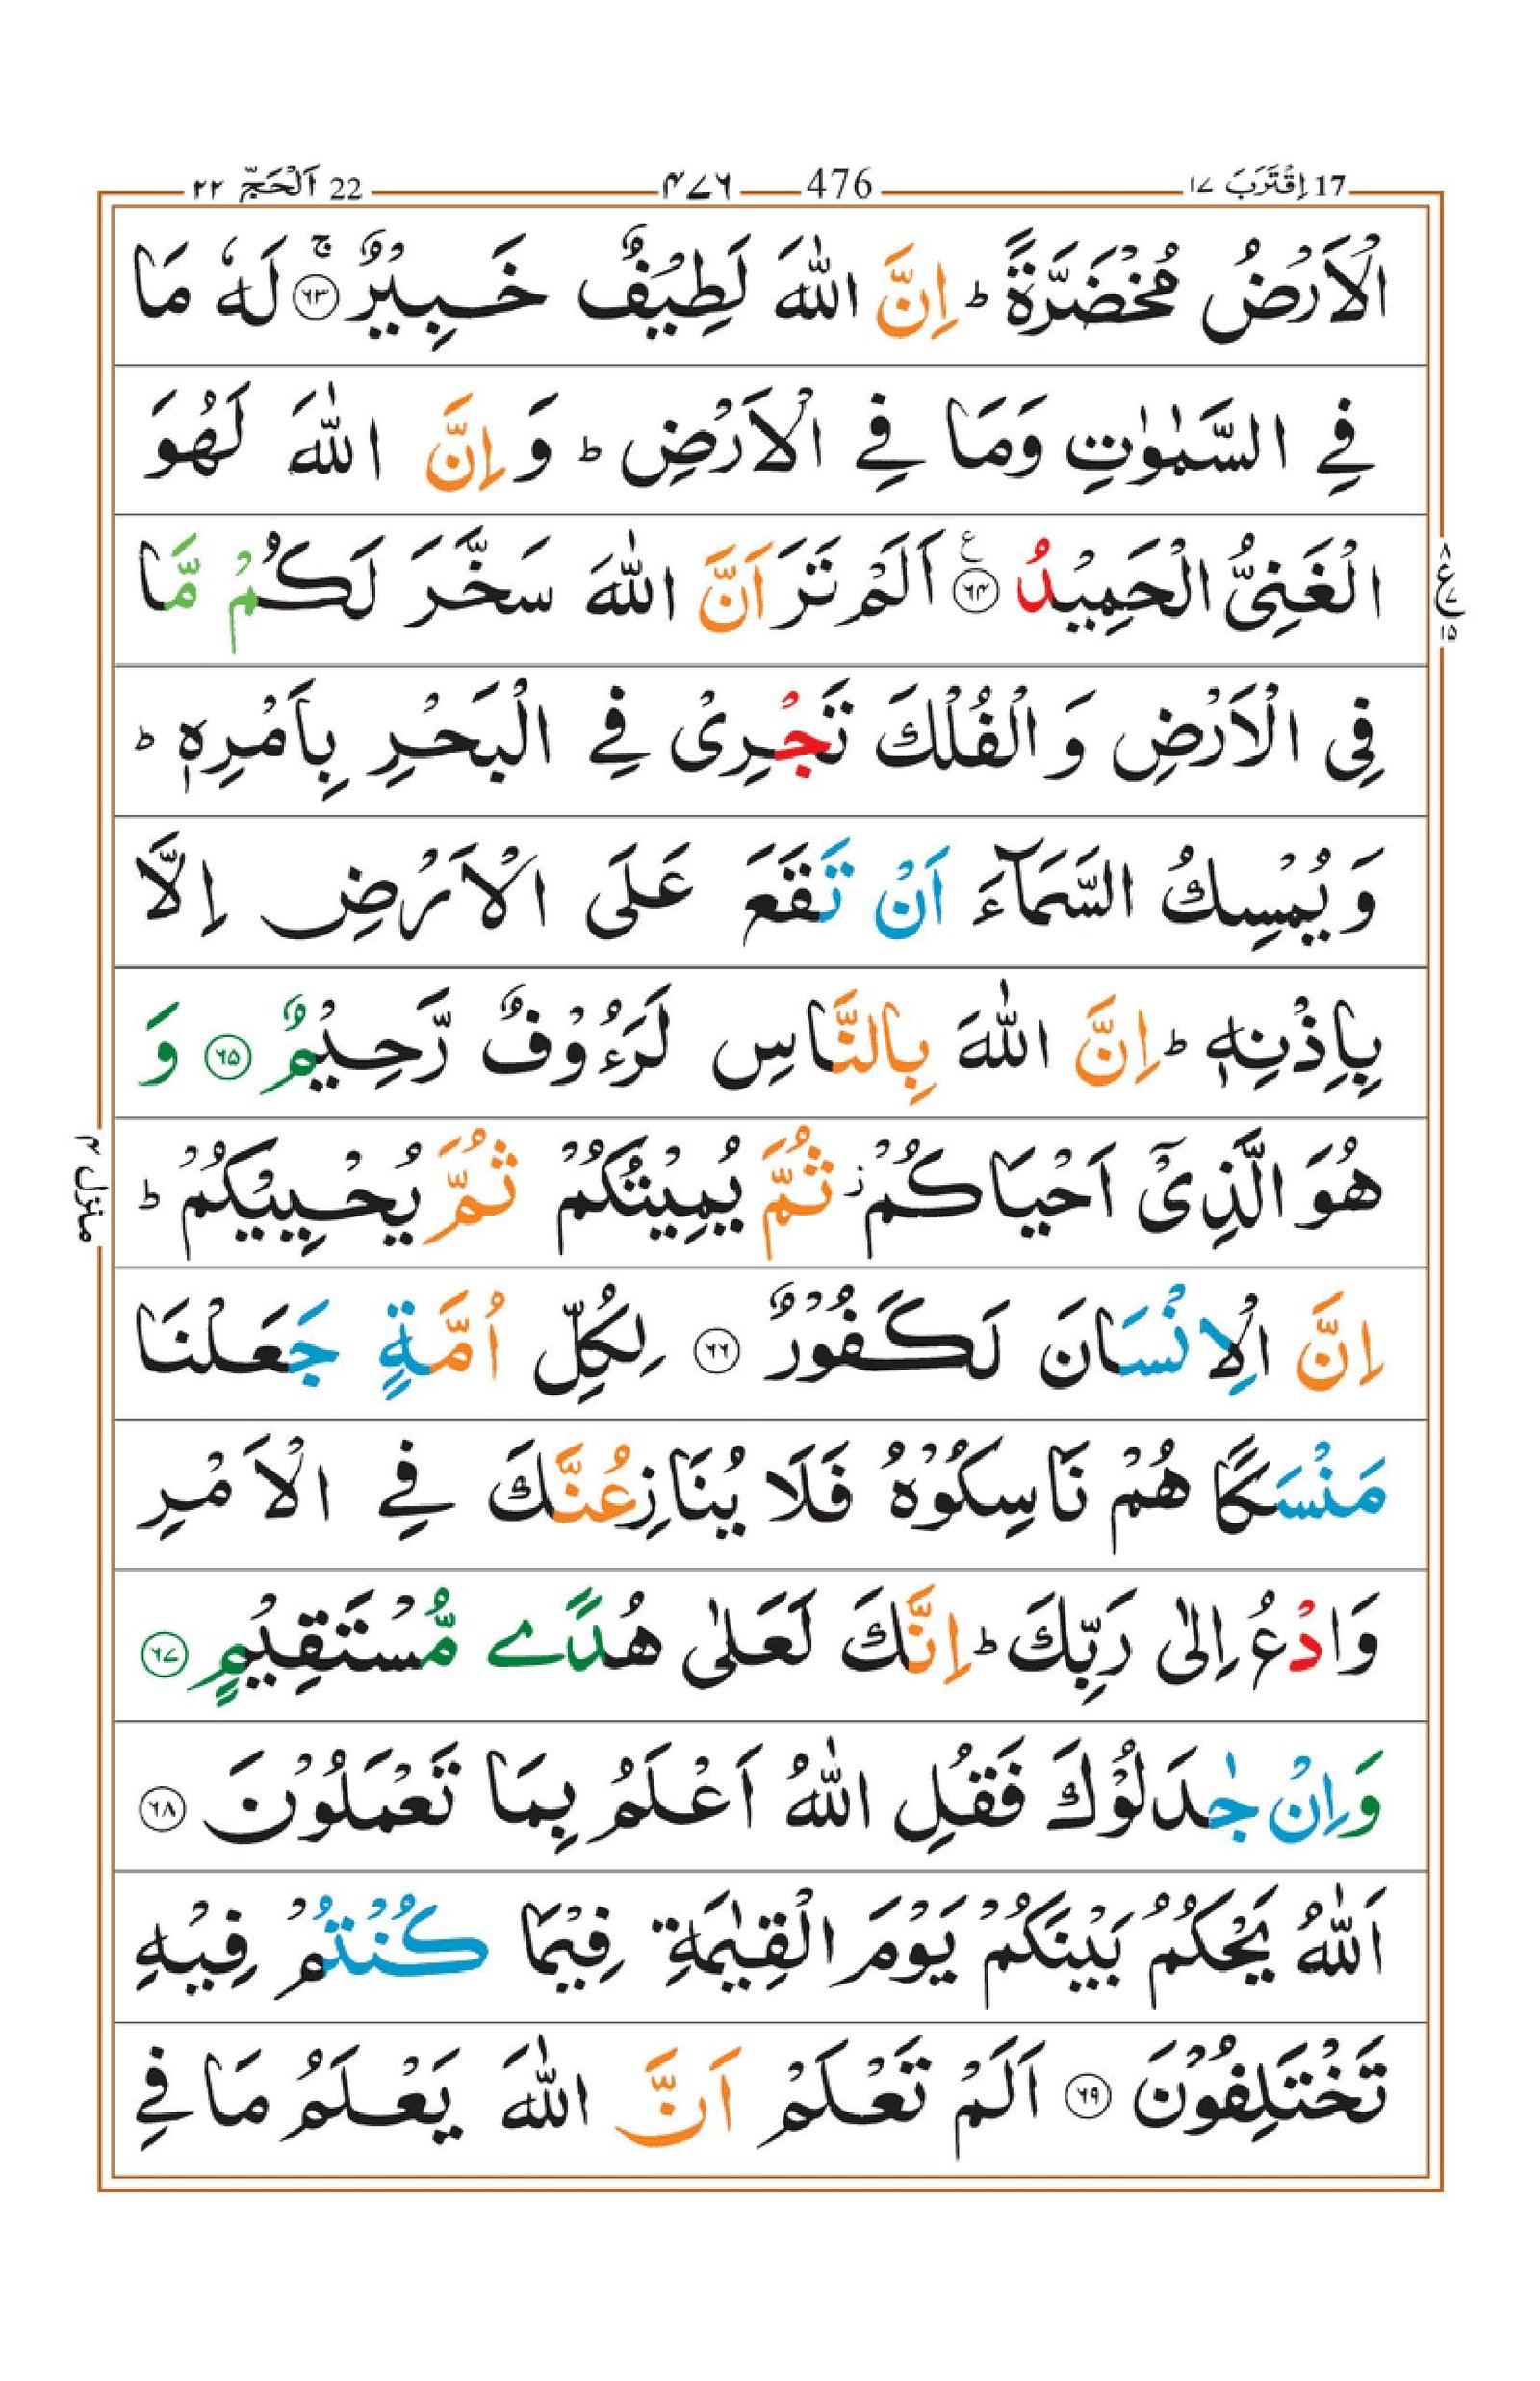 22 اَلْحَجّ ٢٢
٤٧٦ 476
17 اِقْتَرَبَ ١٧
الْاَرْضُ مُخْضَرَّةً ؕ اِنَّ اللّٰهَ لَطِيْفٌ خَبِيْرٌ ۚ ﴿۶۳﴾ لَهٗ مَا
فِي السَّمٰوٰتِ وَمَا فِي الْاَرْضِ ؕ وَاِنَّ اللّٰهَ لَهُوَ
الْغَنِيُّ الْحَمِيْدُ ﴿۶۴﴾ ع اَلَمْ تَرَ اَنَّ اللّٰهَ سَخَّرَ لَكُمْ مَّا
٨ ع ٧ ١٥
فِي الْاَرْضِ وَ الْفُلْكَ تَجْرِيْ فِي الْبَحْرِ بِاَمْرِهٖ ؕ
وَ يُمْسِكُ السَّمَآءَ اَنْ تَقَعَ عَلَى الْاَرْضِ اِلَّا
بِاِذْنِهٖ ؕ اِنَّ اللّٰهَ بِالنَّاسِ لَرَءُوْفٌ رَّحِيْمٌ ﴿۶۵﴾ وَ
هُوَ الَّذِيْۤ اَحْيَاكُمْ ؗ ثُمَّ يُمِيْتُكُمْ ثُمَّ يُحْيِيْكُمْ ؕ
منزل ۴
اِنَّ الْاِنْسَانَ لَكَفُوْرٌ ﴿۶۶﴾ لِكُلِّ اُمَّةٍ جَعَلْنَا
مَنْسَكًا هُمْ نَاسِكُوْهُ فَلَا يُنَازِعُنَّكَ فِي الْاَمْرِ
وَادْعُ اِلٰى رَبِّكَ ؕ اِنَّكَ لَعَلٰى هُدًے مُّسْتَقِيْمٍ ﴿۶۷﴾
وَاِنْ جٰدَلُوْكَ فَقُلِ اللّٰهُ اَعْلَمُ بِمَا تَعْمَلُوْنَ ﴿۶۸﴾
اَللّٰهُ يَحْكُمُ بَيْنَكُمْ يَوْمَ الْقِيٰمَةِ فِيْمَا كُنْتُمْ فِيْهِ
تَخْتَلِفُوْنَ ﴿۶۹﴾ اَلَمْ تَعْلَمْ اَنَّ اللّٰهَ يَعْلَمُ مَا فِي